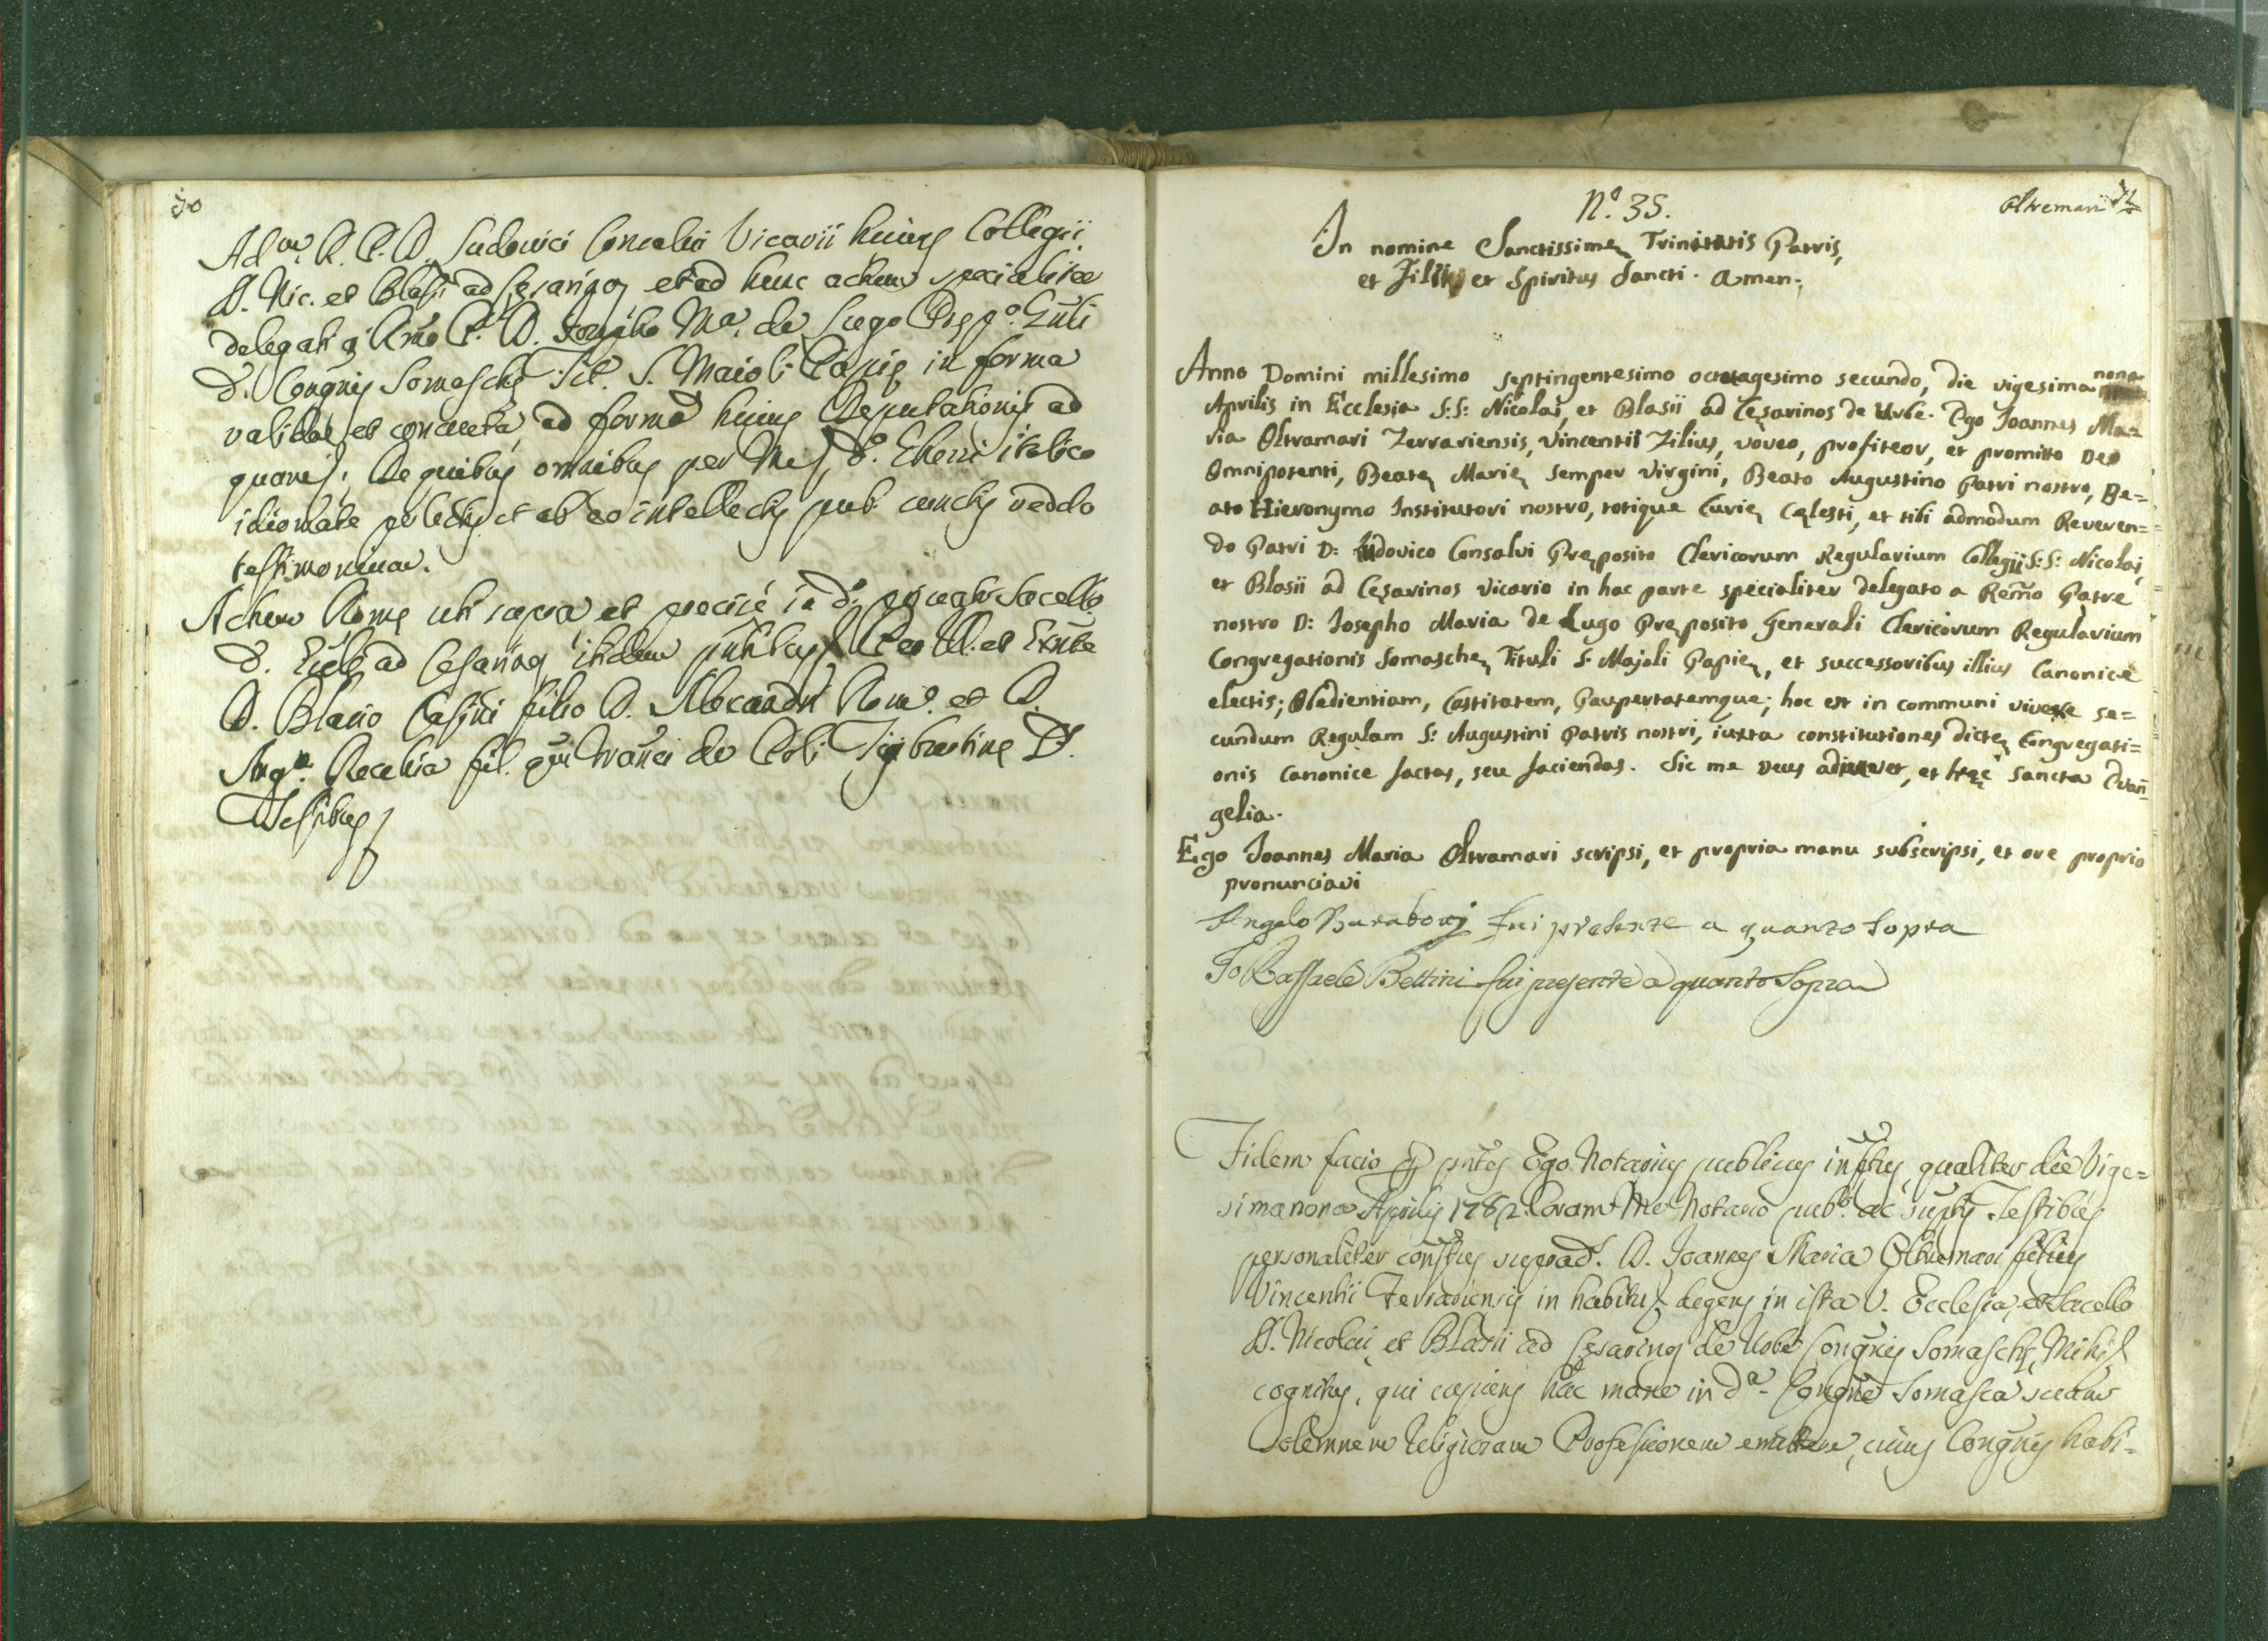 70
Adm. R. P. D. Ludovici Consalvi Vicarii huius Collegii
S. Nic. et Blasii ad Cęsarinos et ad hunc actum specialiter
delegat q Rmo P. D. Josepho Ma. de Lugo Prępo. Gnli
d. Congnis Somaschę Tit. S. Maioli Papię in forma
valida et consueta ad forma huius Deputationis ad
quam De quibus omnibus per Me d. italico
idiomate et ab eo intellectis put cunctis reddo
testimonium.
Actum Romę uti supra et precise in do. Sacello
d. ad Cesarinos ibidem pntbus et Exnte
D. Blasio Casini filio D. Alexandri Rom. et D.
Ang. Recchia fil. qm Franci de
Testibus

N.o 35. Oltremari 71
In nomine Sanctissimę Trinitatis Patris,
et Filii, et Spiritus Sancti. Amen.
Anno Domini millesimo septingentesimo octuagesimo secundo, die vigesima nona
Aprilis in Ecclesia S:S: Nicolai, et Blasii ad Cęsarinos de Urbe. Ego Joannes Ma=
ria Oltramari Ferrariensis, Vincentii Filius, voveo, profiteor, et promitto Deo
Omnipotenti, Beatę Marię semper Virgini, Beato Augustino Patri nostro, Be=
ato Hieronymo Institutori nostro, totique Curię Cęlesti, et tibi admodum Reveren=
do Patri D: Ludovico Consalvi Pręposito Clericorum Regularium Collegii S:S: Nicolai,
et Blasii ad Cęsarinos Vicario in hac parte specialiter delegato a Remo Patre
nostro D: Josepho Maria de Lugo Pręposito Generali Clericorum Regularium
Congregationis Somaschę Tituli S: Majoli Papię, et successoribus illius Canonice
electis; Obedientiam, Castitatem, Paupertatemque; hoc est in communi vivere se=
cundum Regulam S: Augustini Patris nostri, iuxta constitutiones dictę Congregati=
onis canonice factas, seu faciendas. Sic me Deus adiuvet, et hęc sancta Evan=
gelia.
Ego Joannes Maria Oltramari scripsi, et propria manu subscripsi, et ore proprio
pronunciavi
Angelo Baraboni fui presente a quanto sopra
Io Raffaele Bettini fui presente a quanto Sopra
Fidem facio p pntes Ego Notarius publicus infrtus, qualiter die Vige=
simanona Aprilis 1782. Coram Me Notario pubo. ac Testibus
personaliter consttus suprad. D. Joannes Maria Oltremari filius
Vincentii Ferrariensis in habitu degens in ista V. Ecclesia, et Sacello
S. Nicolai, et Blasii ad Cęsarinos de Urbe Congnis Somaschę, Mihi
cognitus, qui cupiens hac mane in da. Congne Somasca suam
Solemnem Religiosam Professionem emittere, cuius Congnis habi=